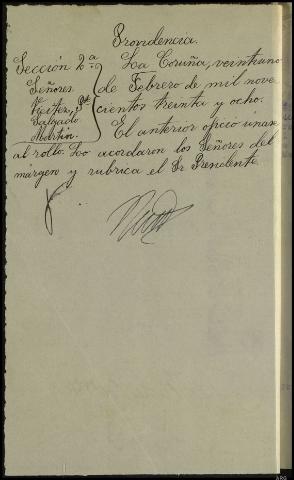 Providencia.
Sección 2ª
Señores
Salgado
Martín.
La Coruña, veintiuno
de Febrero de mil nove
cientos treinta y ocho.
El anterior oficio únase
al rollo. Lo acordaron los Señores del
márgen y rubrica el Sr Presidente